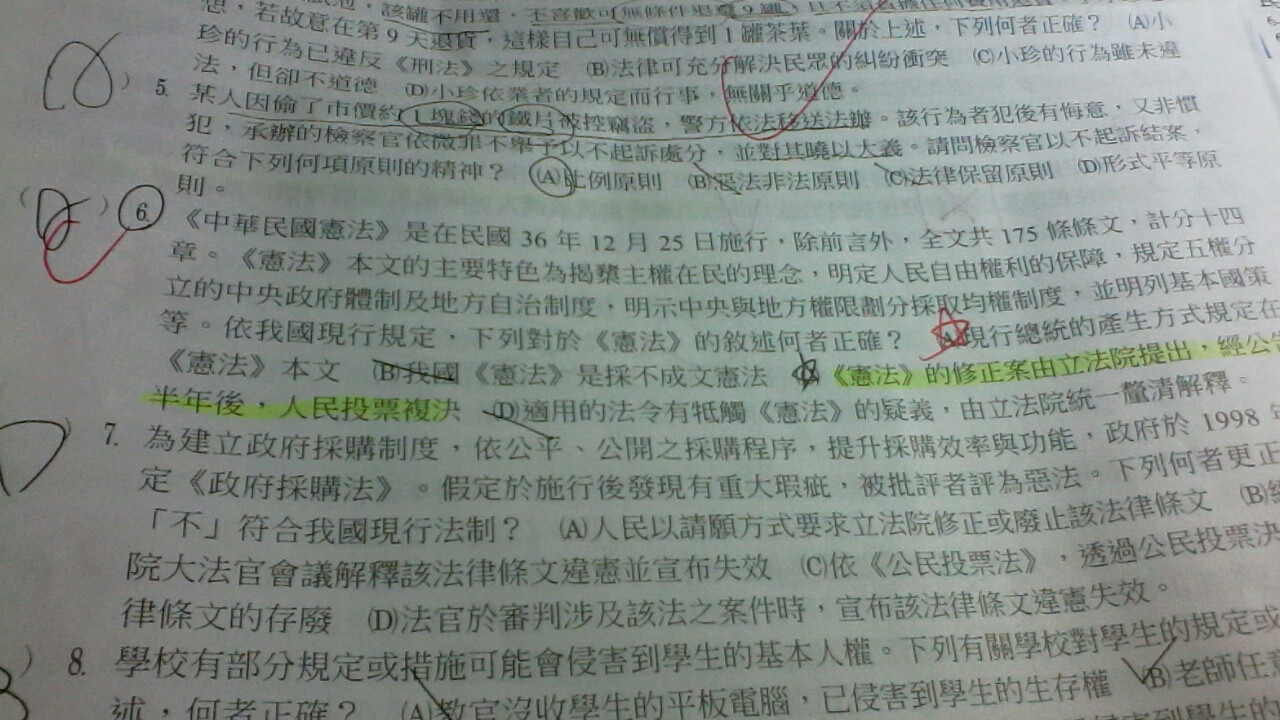 想，若故意在第9天退貨，這樣自己可無償得到1罐茶葉。關於上述，下列何者正確？ (A)小
珍的行為已違反《刑法》之規定 (B)法律可充分解決民眾的糾紛衝突 (C)小珍的行為雖未違
法，但卻不道德 (D)小珍依業者的規定而行事，無關乎道德。
) 5. 某人因偷了市價約1塊錢的鐵片被控竊盜，警方依法移送法辦。該行為者犯後有悔意，又非慣
犯，承辦的檢察官依微罪不舉予以不起訴處分，並對其曉以大義。請問檢察官以不起訴結案，
符合下列何項原則的精神？ (A)比例原則 (B)惡法非法原則 (C)法律保留原則 (D)形式平等原
則。
( ) 6. 《中華民國憲法》是在民國36年12月25日施行，除前言外，全文共175條條文，計分十四
章。《憲法》本文的主要特色為揭櫫主權在民的理念，明定人民自由權利的保障，規定五權分
立的中央政府體制及地方自治制度，明示中央與地方權限劃分採取均權制度，並明列基本國策
等。依我國現行規定，下列對於《憲法》的敘述何者正確？ (A)現行總統的產生方式規定在
《憲法》本文 (B)我國《憲法》是採不成文憲法 《憲法》的修正案由立法院提出，經公告
半年後，人民投票複決 (D)適用的法令有牴觸《憲法》的疑義，由立法院統一釐清解釋。
D 7. 為建立政府採購制度，依公平、公開之採購程序，提升採購效率與功能，政府於1998
定《政府採購法》。假定於施行後發現有重大瑕疵，被批評者評為惡法。下列何者更正
「不」符合我國現行法制？ (A)人民以請願方式要求立法院修正或廢止該法律條文 (B)
院大法官會議解釋該法律條文違憲並宣布失效 (C)依《公民投票法》，透過公民投票決
律條文的存廢 (D)法官於審判涉及該法之案件時，宣布該法律條文違憲失效。
) 8. 學校有部分規定或措施可能會侵害到學生的基本人權。下列有關學校對學生的規定或
述，何者正確？ (A)教官沒收學生的平板電腦，已侵害到學生的生存權 (B)老師任意